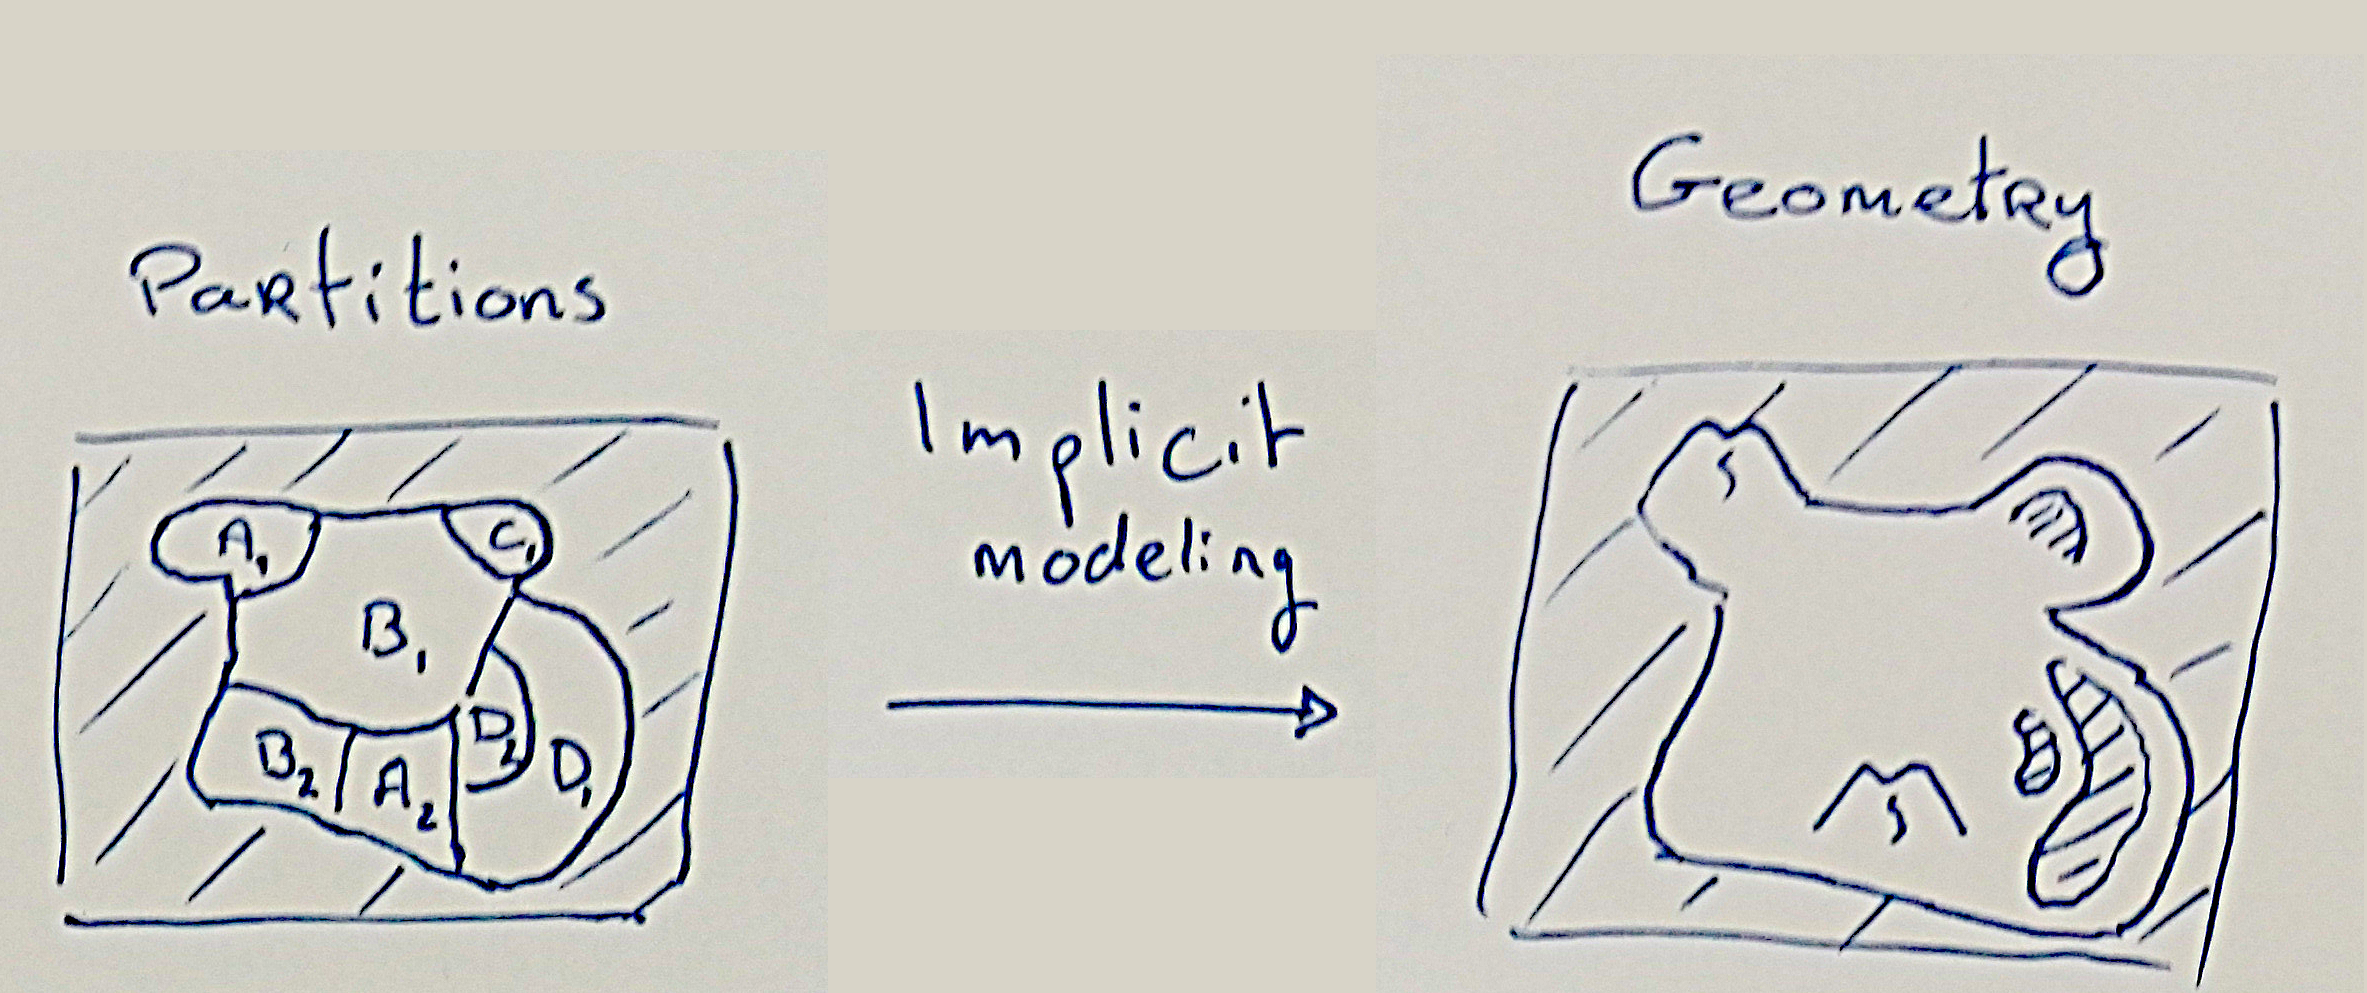 Partitions
A1
C1
B1
B2
A2
D2
D1
Implicit
modeling
Geometry